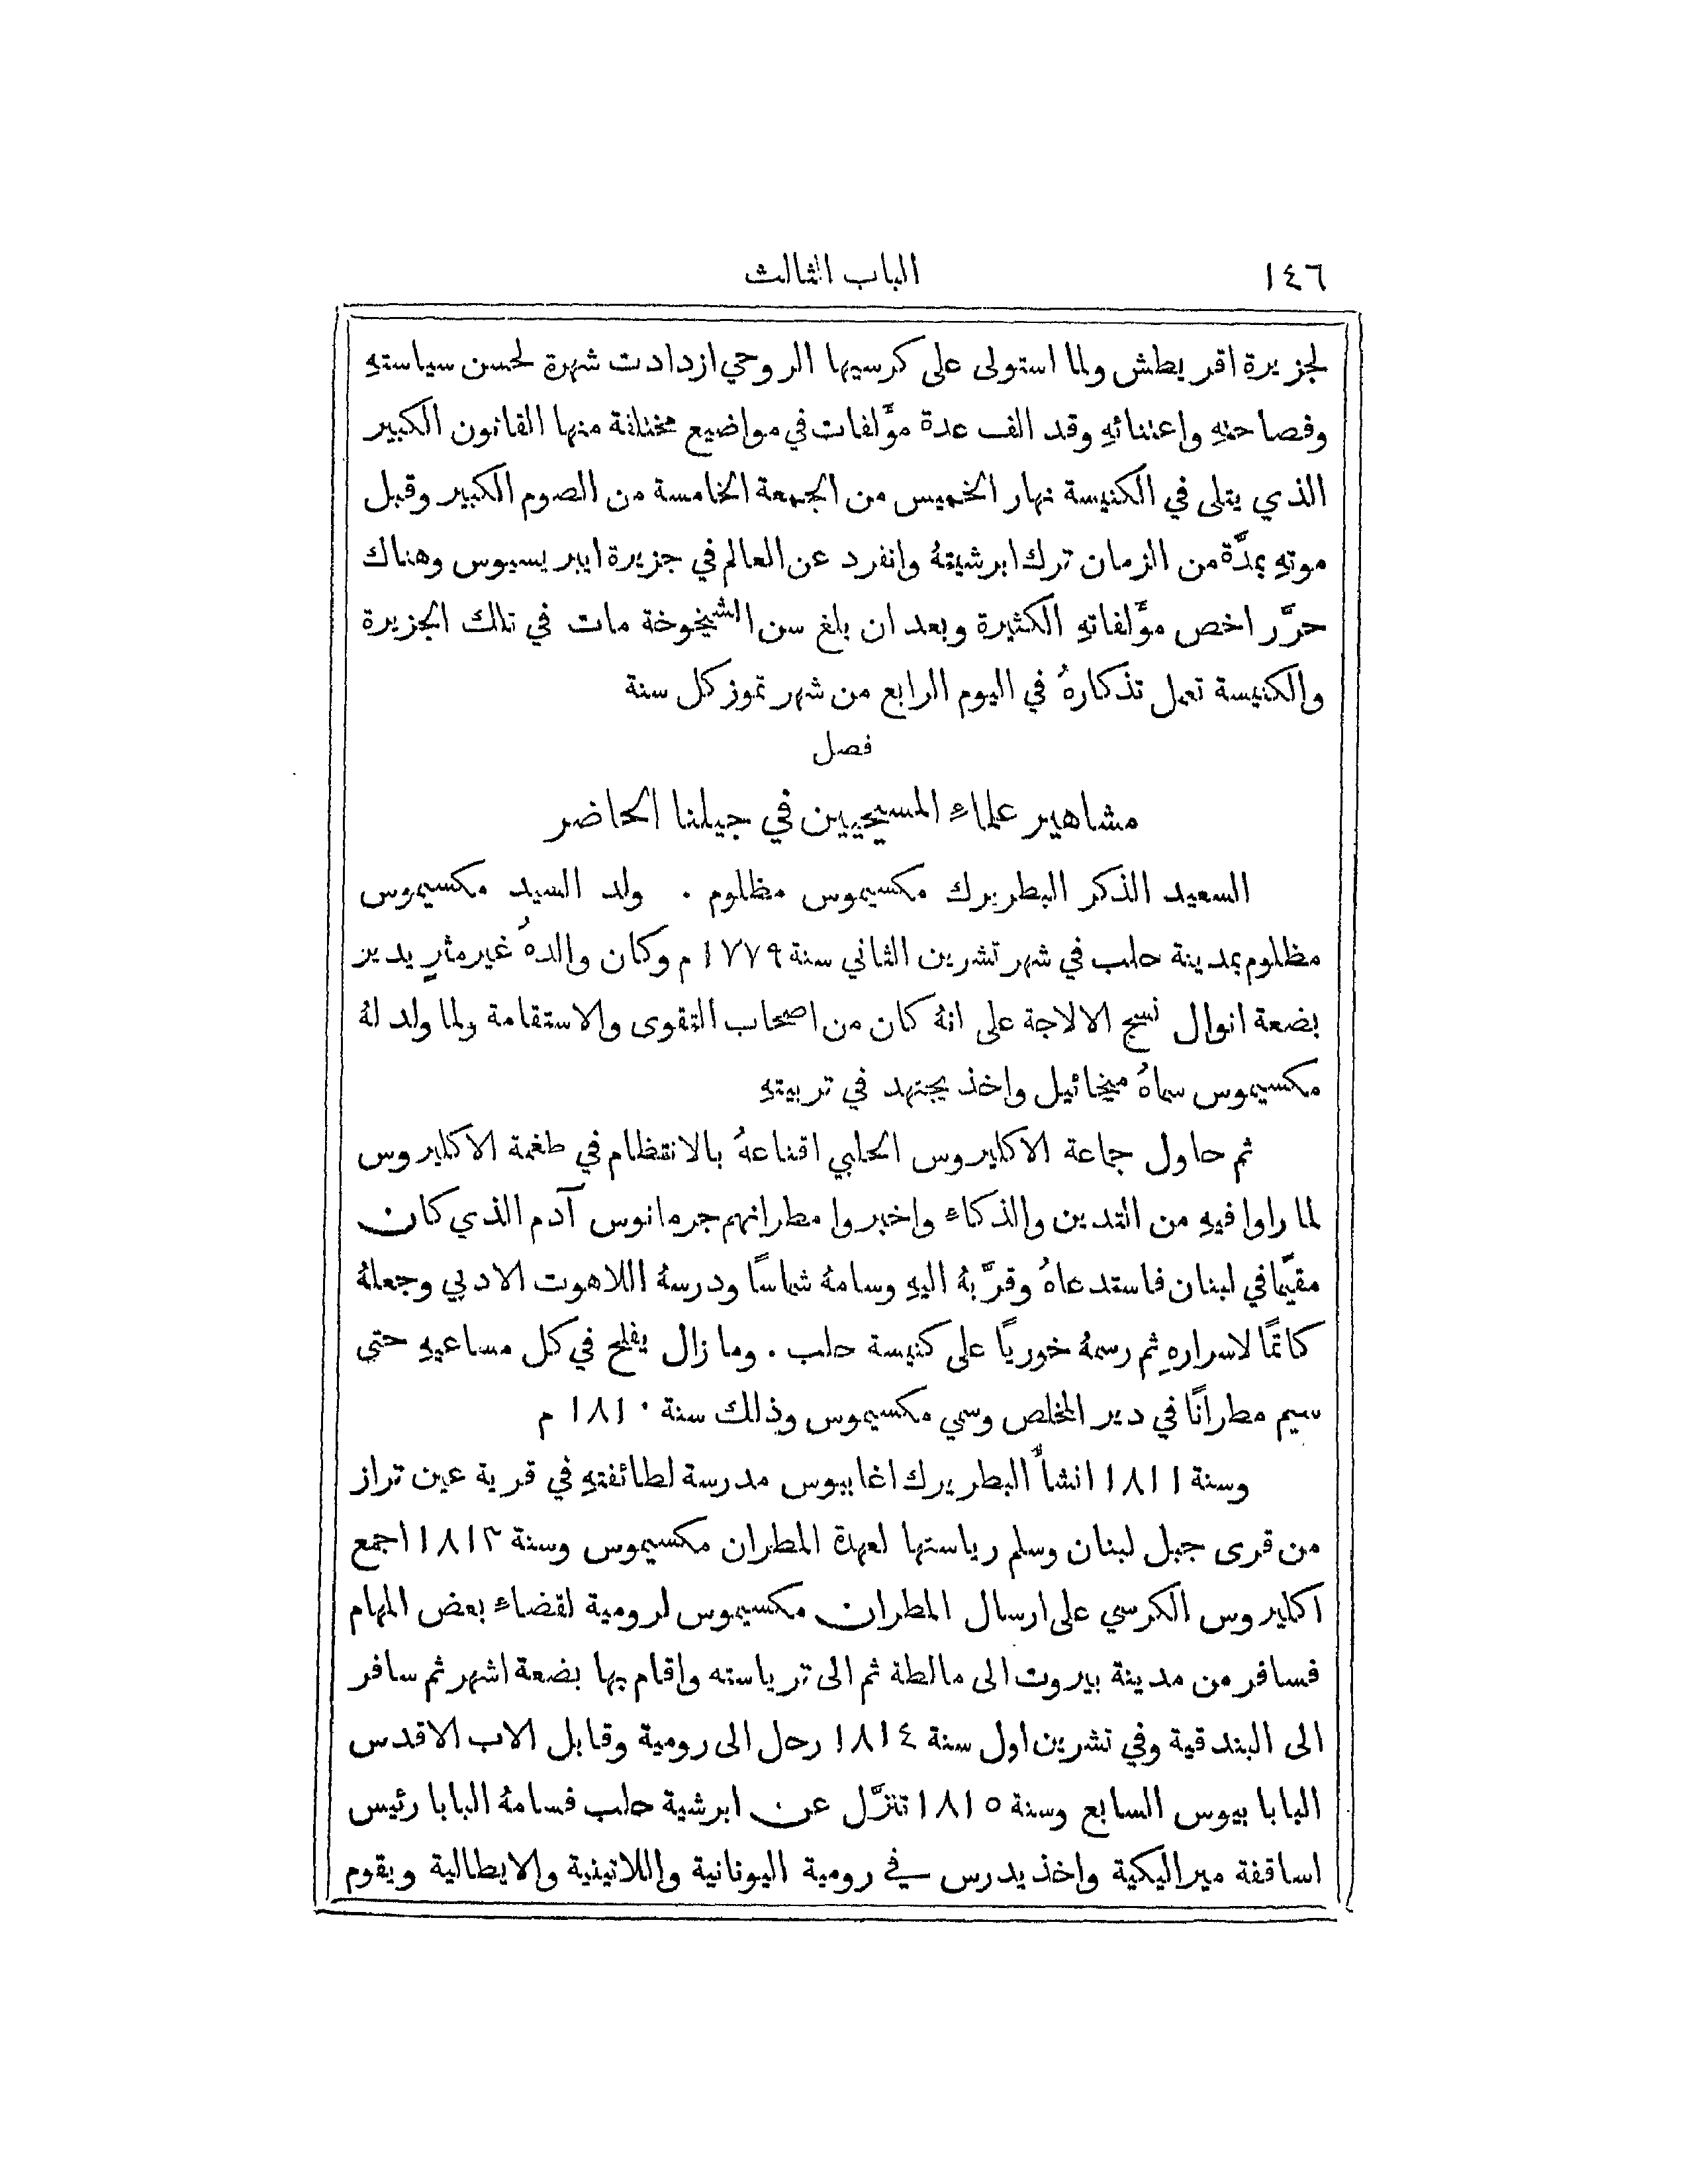 ١٤٦ الباب الثالث
لجزيرة اقريطش ولما استولى على كرسيها الروحي ازدادت شهرة لحسن سياستهِ
وفصاحتهِ واعتنائهِ وقد الف عدة مؤَّلفات في مواضيع مختلفة منها القانون الكبير
الذي يتلى في الكنيسة نهار الخميس من الجمعة الخامسة من الصوم الكبير وقبل
موتهِ بمدَّة من الزمان ترك ابرشيتهُ وانفرد عن العالم في جزيرة ايبريسيوس وهناك
حرَّر اخص مؤَّلفاتهِ الكثيرة وبعد ان بلغ سن الشيخوخة مات في تلك الجزيرة
والكنيسة تعمل تذكارهُ في اليوم الرابع من شهر تموز كل سنة
فصل
مشاهير علماء المسيحيين في جيلنا الحاضر
السعيد الذكر البطريرك مكسيموس مظلوم . ولد السيد مكسيموس
مظلوم بمدينة حلب في شهر تشرين الثاني سنة ١٧٧٩ م وكان والدهُ غير مثرٍ يدير
بضعة انوال نسج الالاجة على انهُ كان من اصحاب التقوى والاستقامة ولما ولد لهُ
مكسيموس سماهُ ميخائيل واخذ يجتهد في تربيتهِ
ثم حاول جماعة الاكليروس الحلبي اقناعهُ بالانتظام في طغمة الاكليروس
لما راوا فيهِ من التدين والذكاء واخبروا مطرانهم جرمانوس آدم الذي كان
مقيمًا في لبنان فاستدعاهُ وقرَّبهُ اليهِ وسامهُ شماسًا ودرسهُ اللاهوت الادبي وجعلهُ
كاتمًا لاسرارهِ ثم رسمهُ خوريًا على كنيسة حلب . وما زال يفلح في كل مساعيهِ حتى
سيم مطرانًا في دير المخلص وسمي مكسيموس وذلك سنة ١٨١٠ م
وسنة ١٨١١ انشأ البطريرك اغابيوس مدرسة لطائفتهِ في قرية عين تراز
من قرى جبل لبنان وسلم رياستها لعهدة المطران مكسيموس وسنة ١٨١٣ اجمع
اكليروس الكرسي على ارسال المطران مكسيموس لرومية لقضاء بعض المهام
فسافر من مدينة بيروت الى مالطة ثم الى ترياسته واقام بها بضعة اشهر ثم سافر
الى البندقية وفي تشرين اول سنة ١٨١٤ رحل الى رومية وقابل الاب الاقدس
البابا بيوس السابع وسنة ١٨١٥ تنزَّل عن ابرشية حلب فسامهُ البابا رئيس
اساقفة ميراليكية واخذ يدرس في رومية اليونانية واللاتينية والايطالية ويقوم